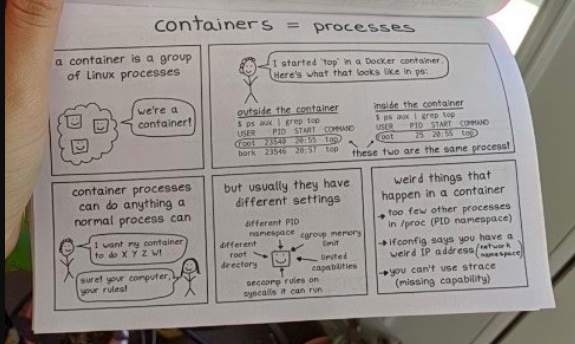 containers = processes
a container is a group
of Linux processes
we're a
container!
I started 'top' in a Docker container.
Here's what that looks like in ps:
outside the container
$ ps aux | grep top
USER PID START COMMAND
root 23540 20:55 top
bork 23546 20:57 top
inside the container
$ ps aux | grep top
USER PID START COMMAND
root 25 20:55 top
these two are the same process!
container processes
can do anything a
normal process can
I want my container
to do X Y Z W!
sure! your computer,
your rules!
but usually they have
different settings
different PID
namespace
cgroup memory
limit
different
root
directory
limited
capabilities
seccomp rules on
syscalls it can run
weird things that
happen in a container
→ too few other processes
in /proc (PID namespace)
→ ifconfig says you have a
weird IP address (network
namespace)
→ you can't use strace
(missing capability)